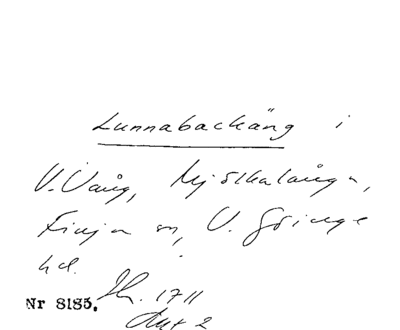 Lunnabackäng i
V. Vång, Mjölkalånga,
Finja sn, V. Göinge
hd.
Nr 8185. Th. 1711
Akt 2